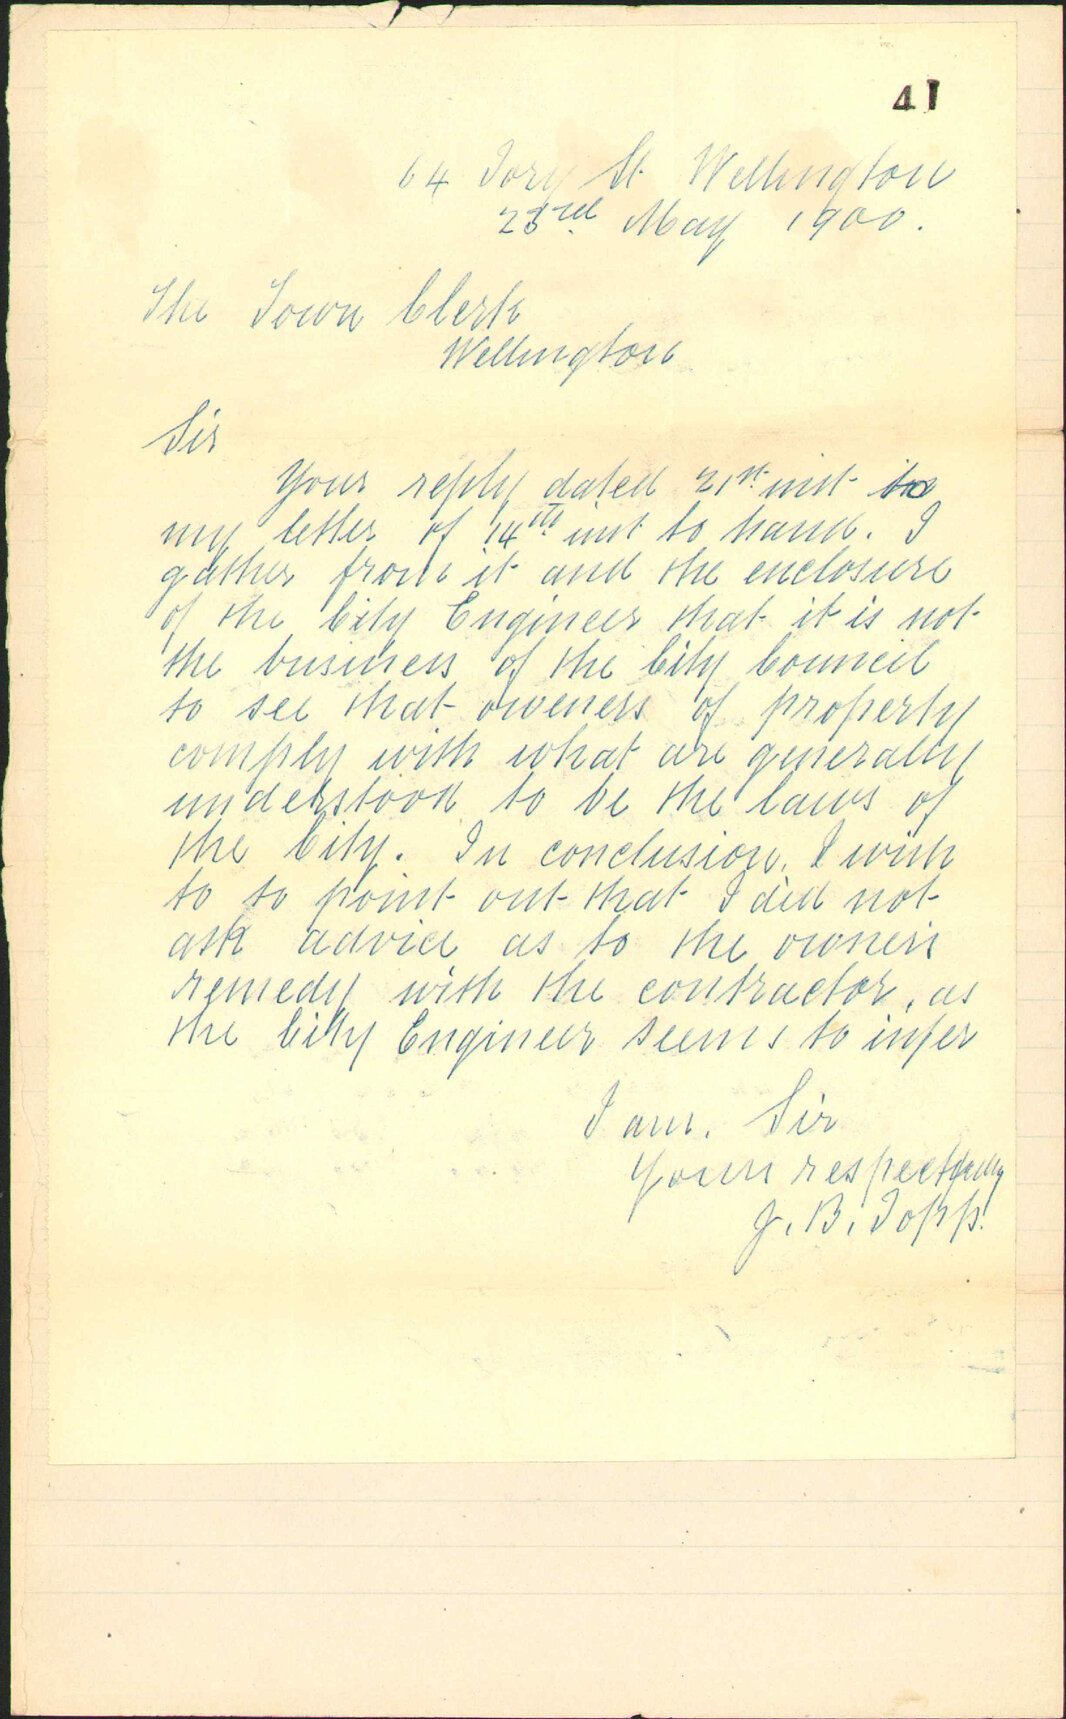 41
64 Tory St Wellington
23rd May 1900.
The Town Clerk
Wellington
Sir
Your reply dated 21st inst to
my letter of 14th inst to hand. I
gather from it and the enclosure
of the City Engineer that it is not
the business of the City Council
to see that owners of property
comply with what are generally
understood to be the laws of
the City. In conclusion, I wish
to to point out that I did not
ask advice as to the owners
remedy with the contractor, as
the City Engineer seems to infer
I am, Sir
Yours respectfully
J. B. Topp.